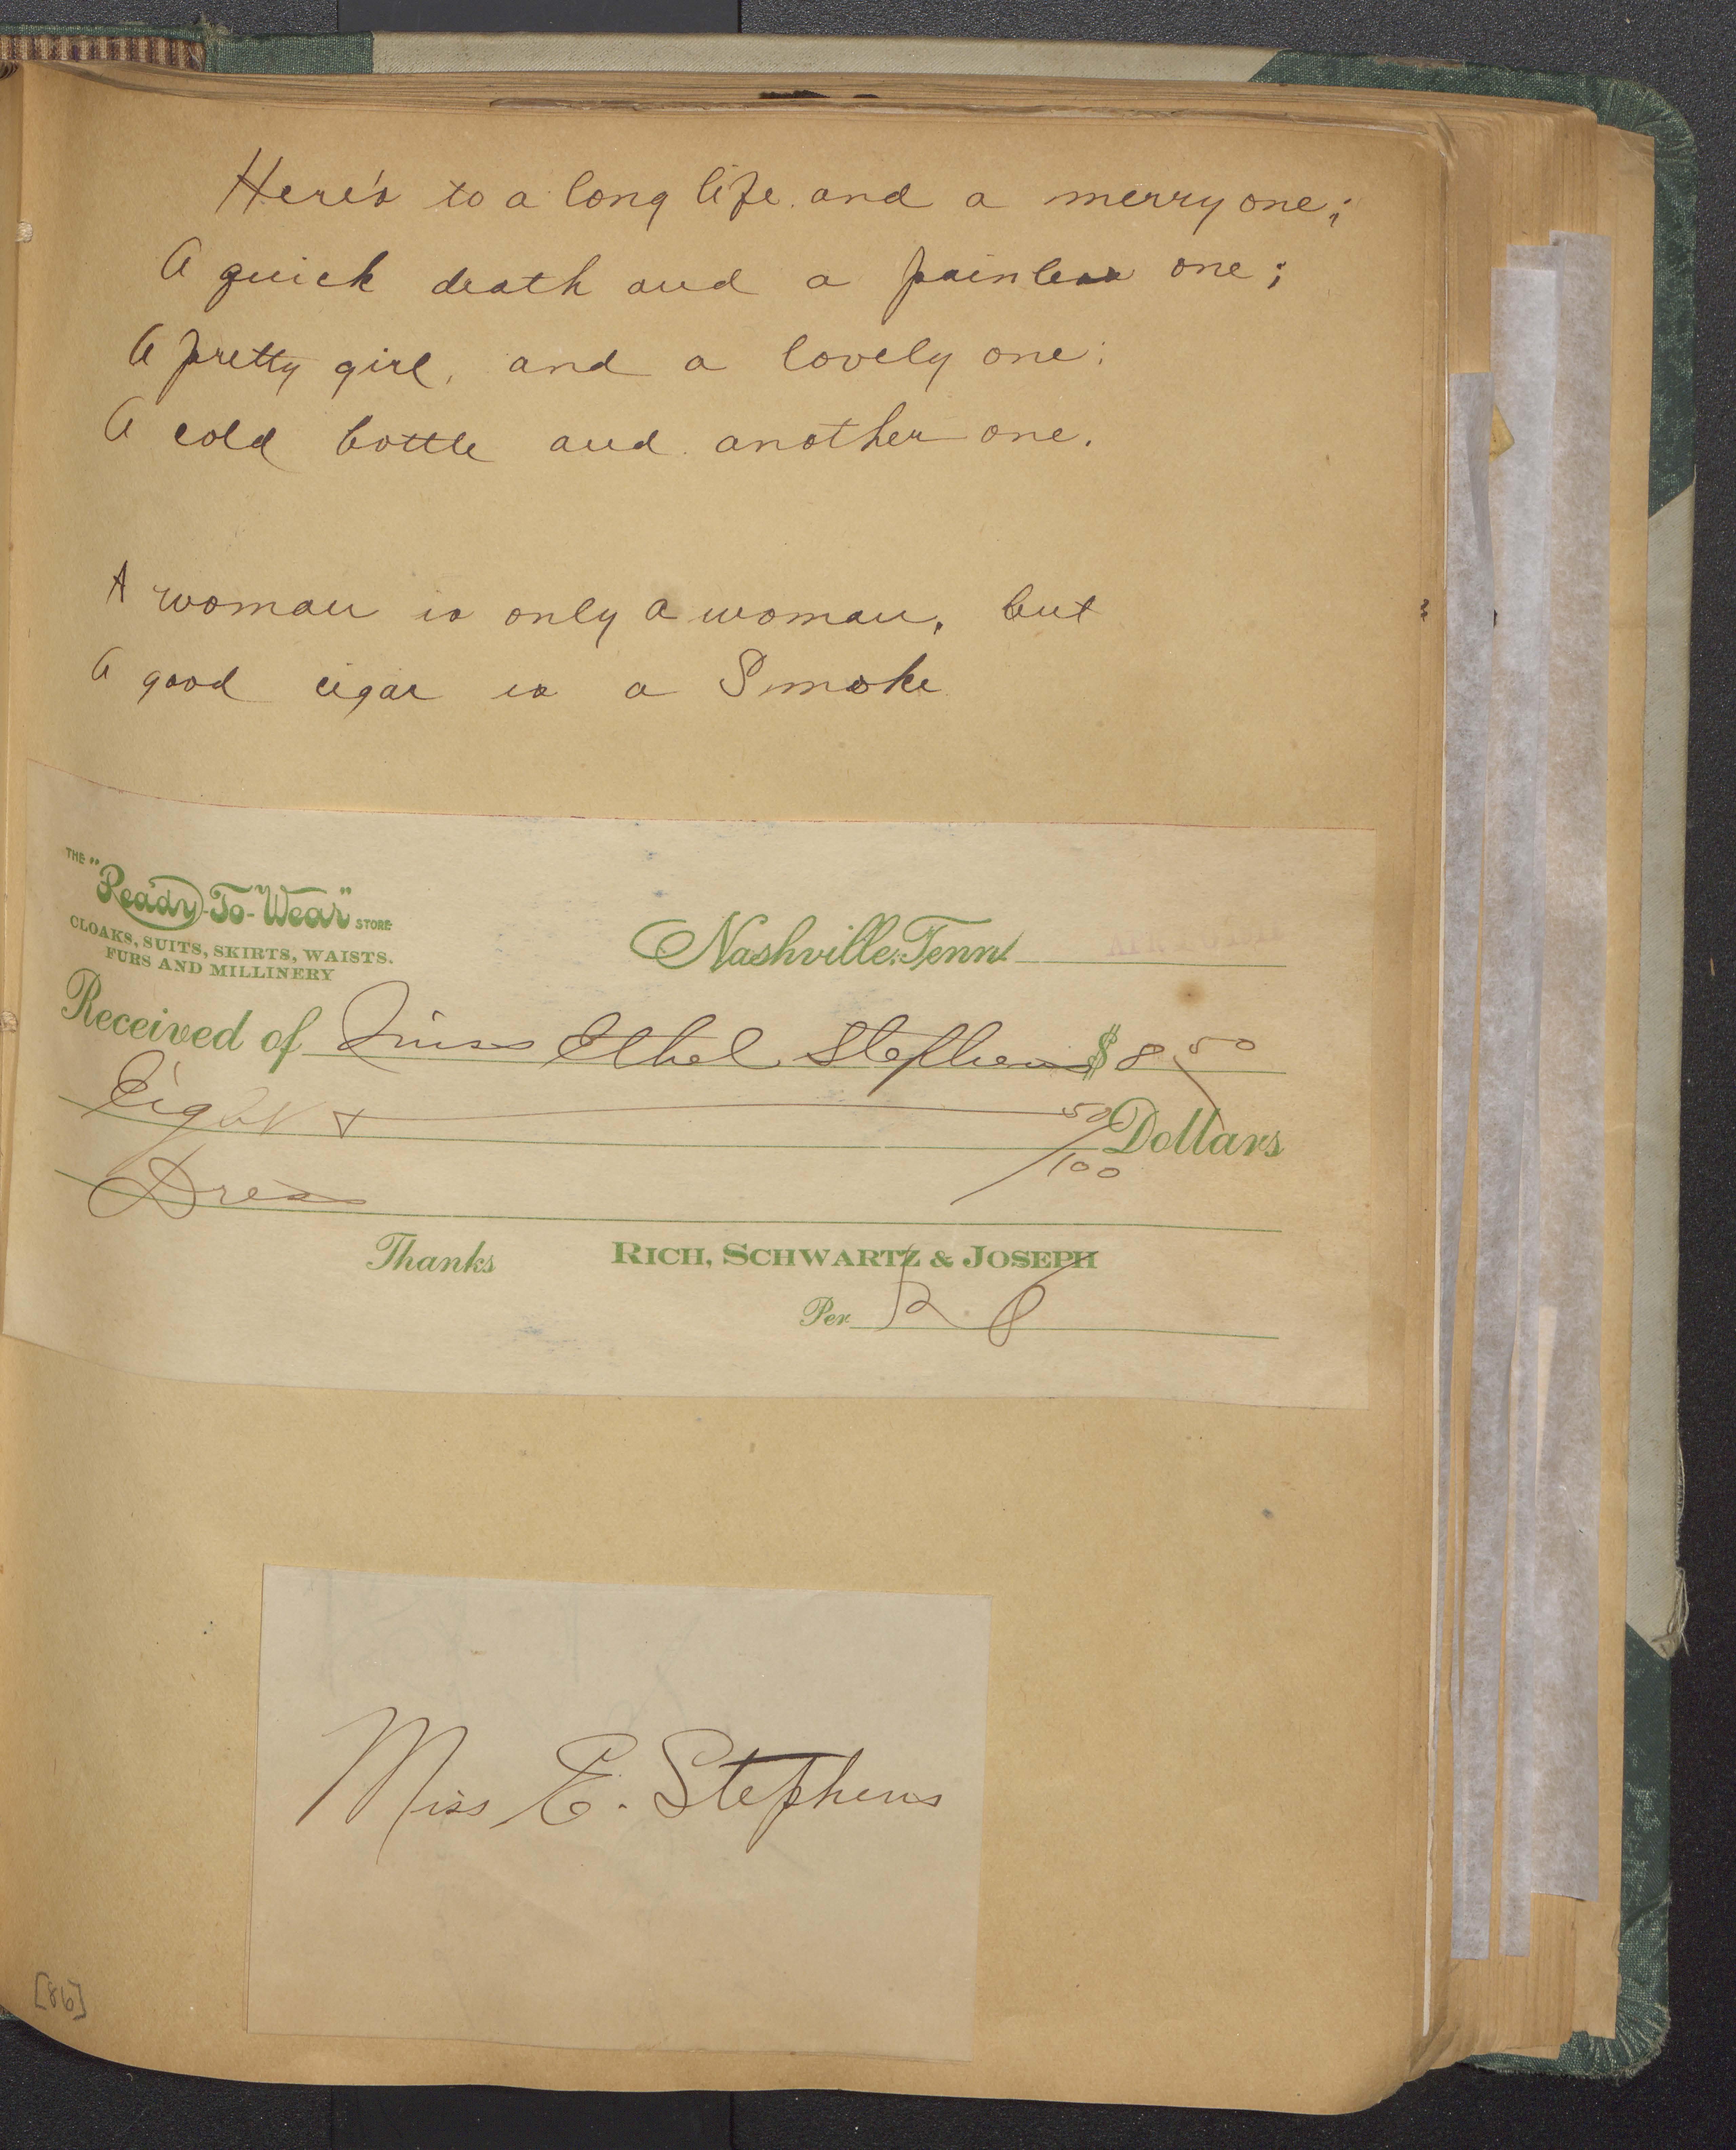 Here's to a long life and a merry one;
A quick death and a painless one;
A pretty girl, and a lovely one;
A cold bottle and another one.
A woman is only a woman, but
A good cigar is a Smoke
THE "Ready-To-Wear" STORE
CLOAKS, SUITS, SKIRTS, WAISTS.
FURS AND MILLINERY
Nashville, Tenn.
Received of Miss Ethel Stephens $ 8 50
Eight & 50/100 Dollars
Dress
Thanks RICH, SCHWARTZ & JOSEPH
Per
Miss E. Stephens
[86]